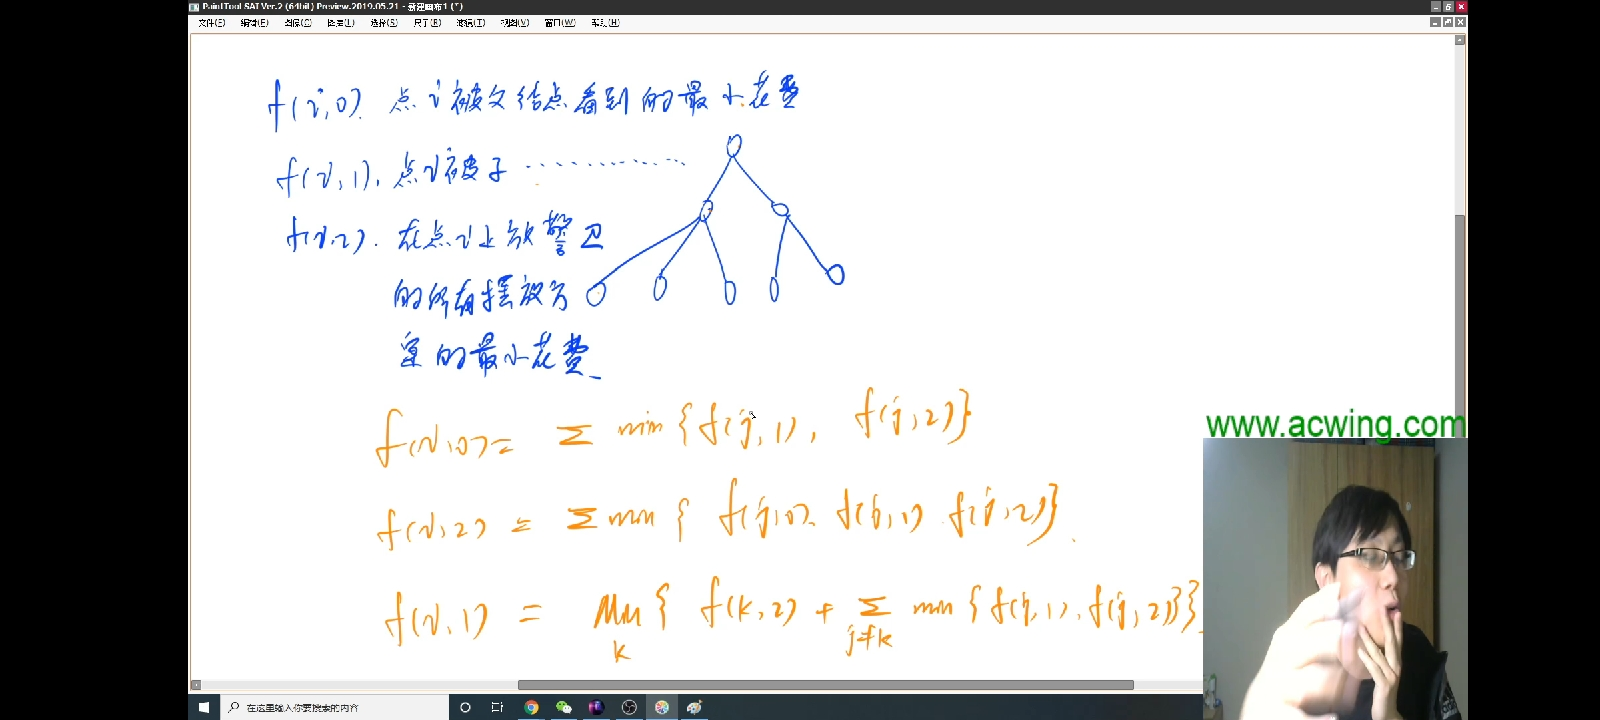 PaintTool SAI Ver.2 (64bit) Preview.2019.05.21 - 新建画布1 (*)
文件(F) 编辑(E) 图像(C) 图层(L) 选择(S) 尺子(R) 滤镜(T) 视图(V) 窗口(W) 帮助(H)
f(i,0). 点i被父结点看到的最小花费
f(i,1), 点i被子 ·············
f(i,2). 在点i上放警卫
的所有摆放方
案的最小花费
f(i,0) = Σ min{f(j,1), f(j,2)}
f(i,2) = Σ min{ f(j,0), f(j,1) f(j,2)}.
f(i,1) = min { f(k,2) + Σ min {f(j,1), f(j,2)}}
k j≠k
www.acwing.com
在这里输入你要搜索的内容